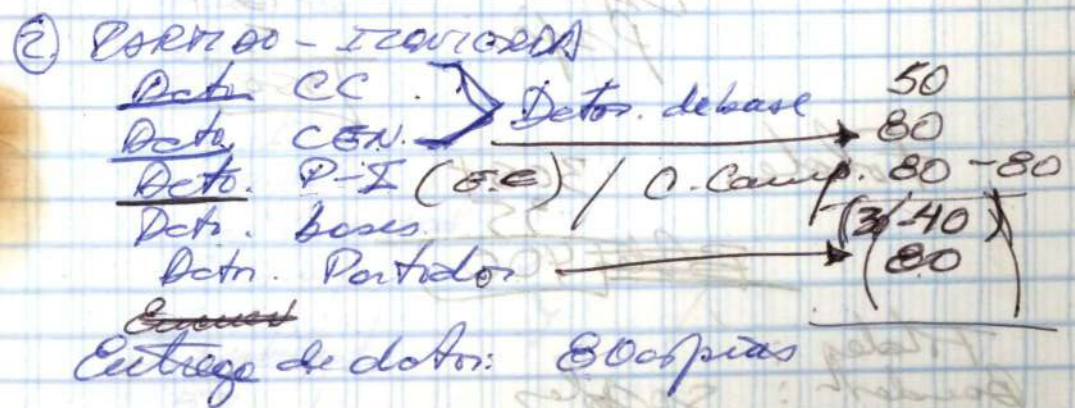 ② PARTIDO - IZQUIERDA
Dctos CC. 50
Dcto. CEN. Dctos. de base 80
Dcto. P-I (E.E) / C. Camp. 80 - 80
Dcts. bases. (3/-40)
Dctos. Partidos 80
Entrega de dctos: 80 copias